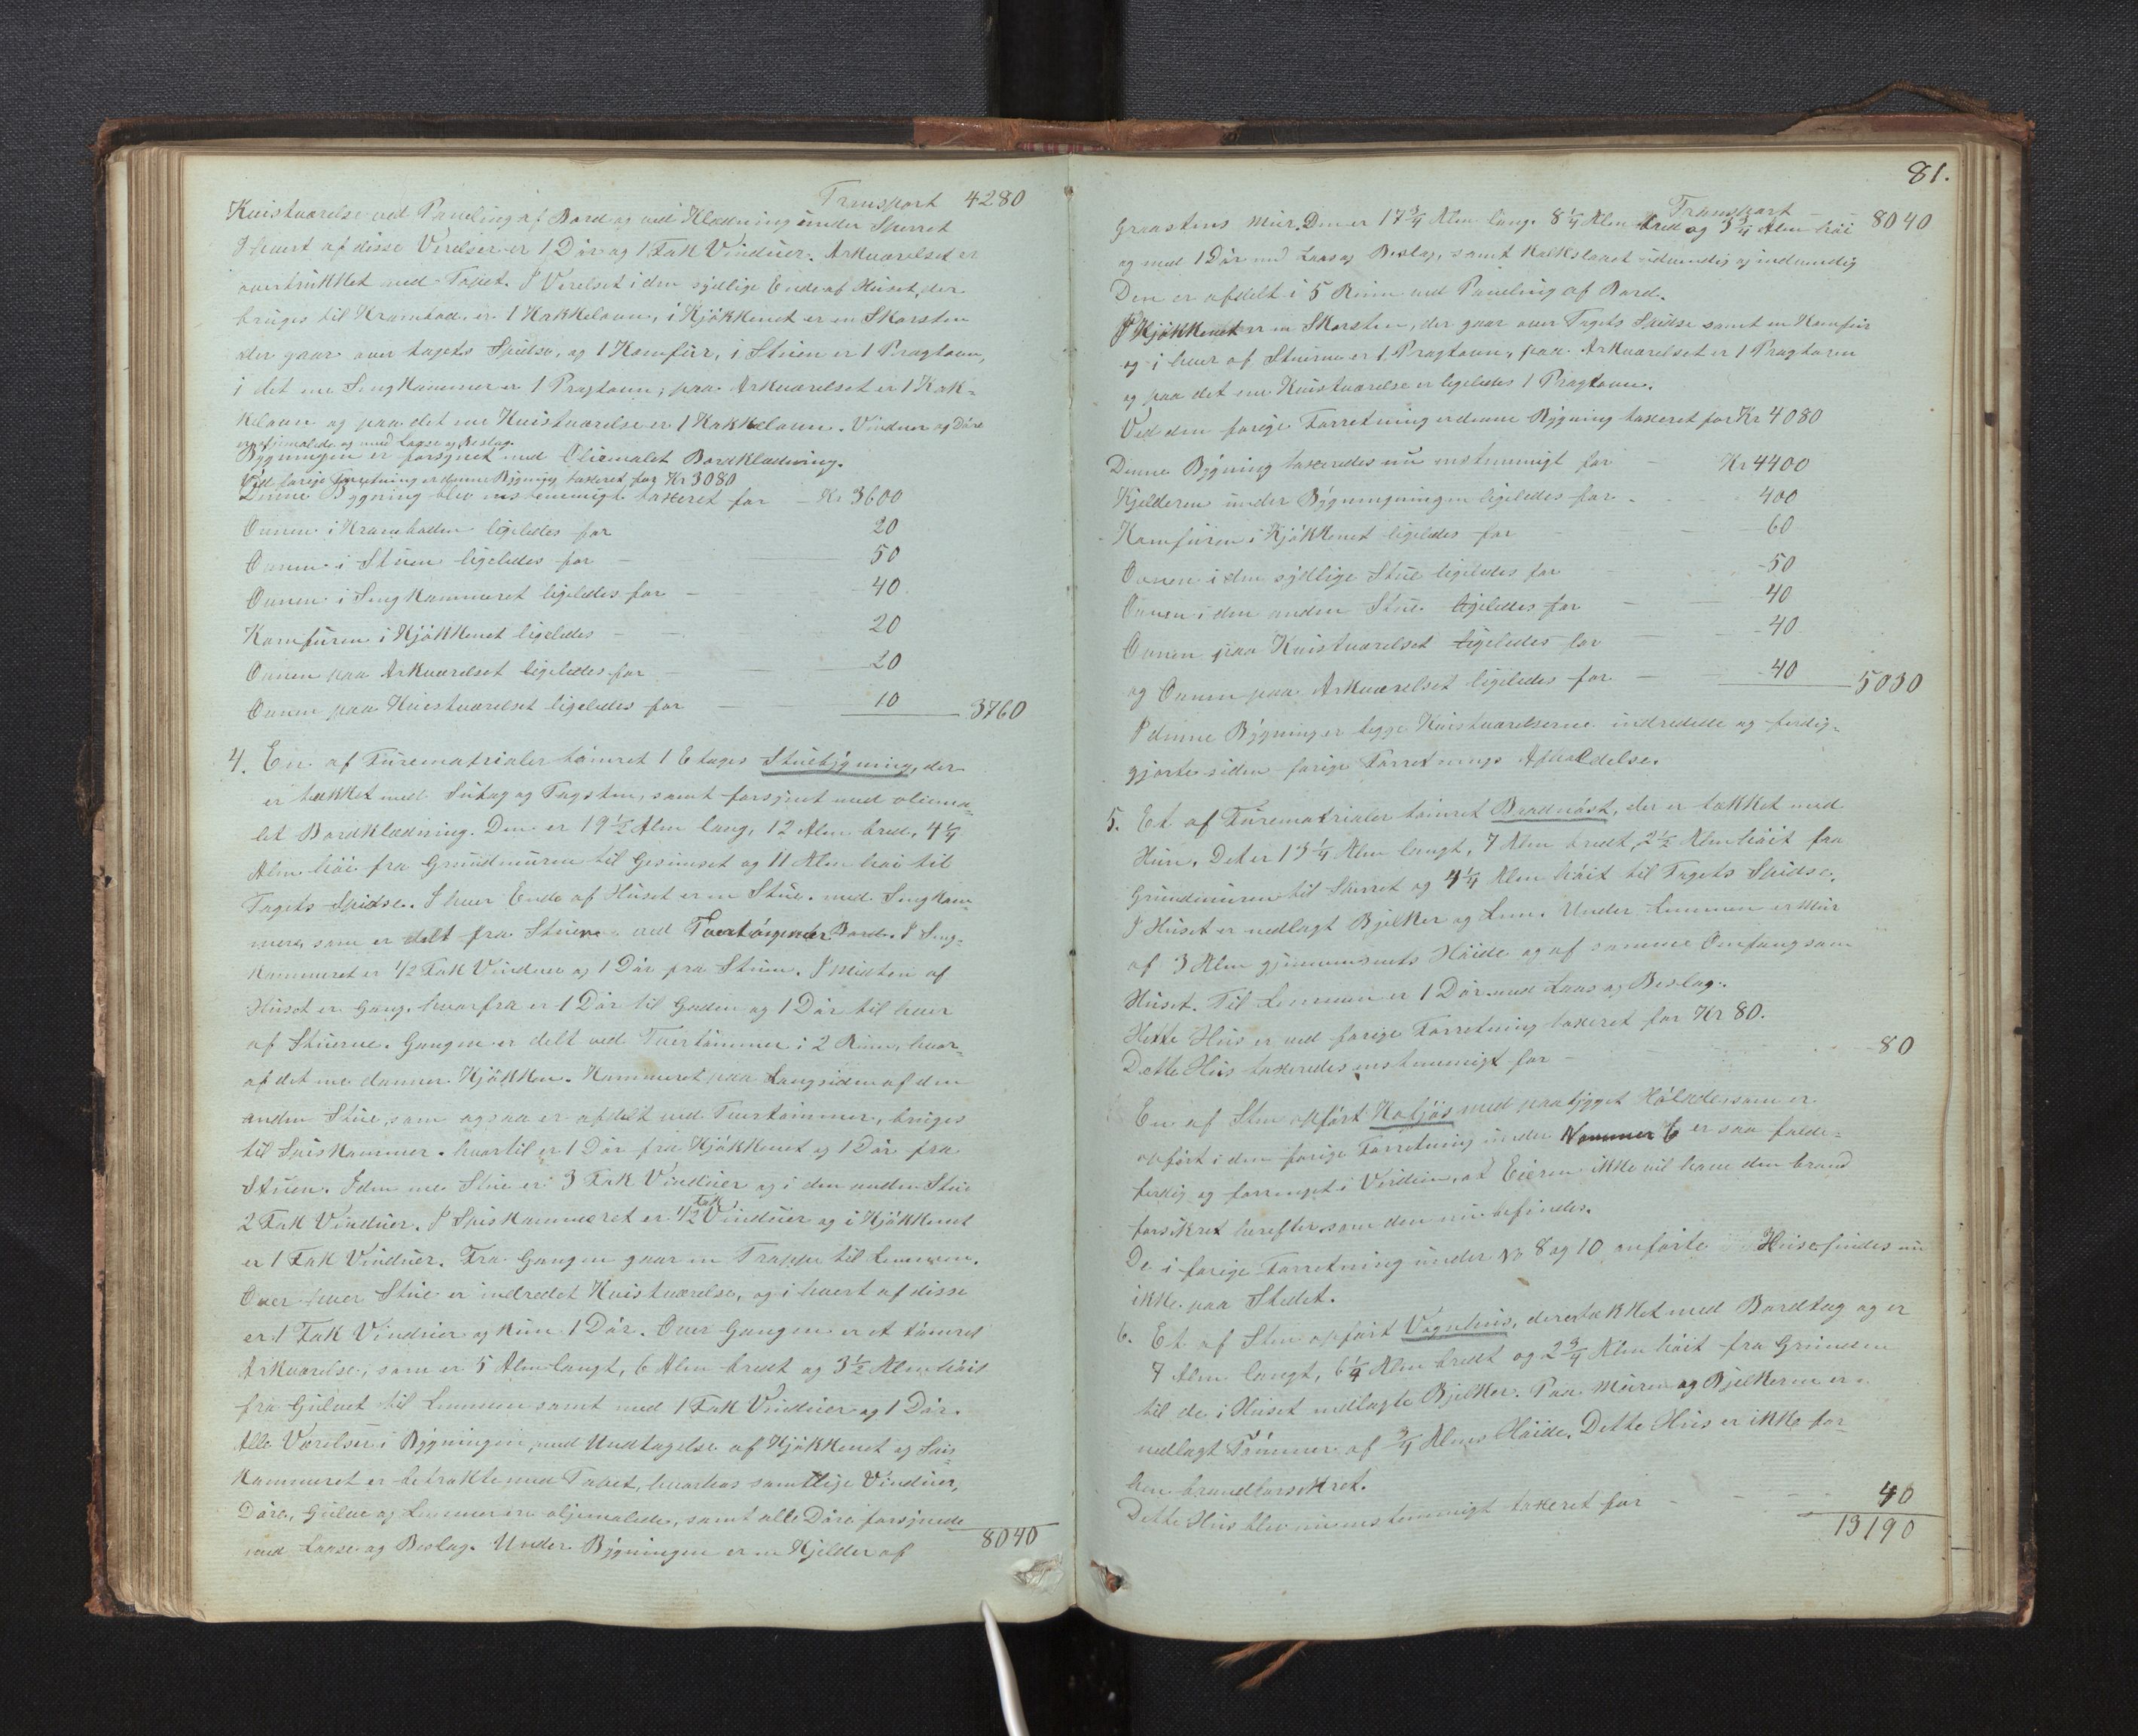 Transport 4280
Kvistværelse ved Paneling af Bord og ved Klædning under Sperret
I hvert af disse Verelser er 1 Dør og 1 Fak Vinduer. Arkværelset er
overtrukket med Tapet. I Verelset i den sydlige Ende af Huset, der
bruges til Krambod, er 1 Kakkelovn, i Kjøkkenet er en Skorsten
der gaar over tagets Spidse, og 1 Komfur, i Stuen er 1 Pragtovn,
i det ene Sengkammer er 1 Pragtovn, paa Arkværelset er 1 Kak-
kelovn og paa det ene Kvistværelse er 1 Kakkelovn. Vinduer og Døre
er oljemalede og med Laase og Beslag.
Bygningen er forsynet med Oliemalet Bordklædning.
Ved forige Forretning er denne Bygning taxeret for Kr 3080
Denne Bygning blev enstemmigt taxeret for - Kr 3600
Ovnen i Kramboden ligeledes for 20
Ovnen i Stuen ligeledes for - 50
Ovnen i Sengkammeret ligeledes for - 40
Komfuren i Kjøkkenet ligeledes - 20
Ovnen paa Arkværelset ligeledes for - 20
Ovnen paa Kvistværelset ligeledes for - 10 3760
4. En af Furematrialer tømret 1 Etages Stuebygning, der
er tækket med Sutag og Tagsten, samt forsynet med oliema-
let Bordklædning. Den er 19 1/2 Alen lang, 12 Alen bred, 4 1/4
Alen høi fra Grundmuren til Gesimset og 11 Alen høi til
Tagets Spidse. I hver Ende af Huset er en Stue med Sengkam-
mer, som er delt fra Stuerne ved Tvertømmer Bord. I Seng-
kammeret er 1/2 Fak Vinduer og 1 Dør fra Stuen. I Midten af
Huset er Gang, hvorfra er 1 Dør til Gaden og 1 Dør til hver
af Stuerne. Gangen er delt ved Tvertømmer i 2 Rum, hvor-
af det ene danner Kjøkken. Kammeret paa Langsiden af den
anden Stue, som ogsaa er afdelt ved Tvertømmer, bruges
til Spiskammer, hvortil er 1 Dør fra Kjøkkenet og 1 Dør fra
Stuen. I den ene Stue er 3 Fak Vinduer og i den anden Stue
2 Fak Vinduer. I Spiskammeret er 1/2 Fak Vinduer og i Kjøkkenet
er 1 Fak Vinduer. Fra Gangen gaar en Trappe til Lemmen.
Over hver Stue er indredet Kvistværelse, og i hvert af disse
er 1 Fak Vinduer og kun 1 Dør. Over Gangen er et tømret
Arkværelse, som er 5 Alen langt, 6 Alen bredt og 3 1/2 Alen høit
fra Gulvet til Lemmen samt med 1 Fak Vinduer og 1 Dør.
Alle Værelser i Bygningen, med Undtagelse af Kjøkkenet og Spis-
kammeret er betrukte med Tapet, hvorhos samtlige Vinduer,
Døre, Gulve og Lemmer ere oljemalede, samt alle Døre forsynede
med Laase og Beslag. Under Bygningen er en Kjelder af 8040
81.
Transport - - 8040
Graastens Mur. Den er 17 3/4 Alen lang, 8 1/4 Alen bred og 3 3/4 Alen høi
og med 1 Dør med Laas og Beslag, samt Kalkslaaet udvendig og indvendig
Den er afdelt i 5 Rum ved Paneling af Bord.
I Kjøkkenet er en Skorsten, der gaar over Tagets Spidse samt en Komfur
og i hver af Stuerne er 1 Pragtovn, paa Arkværelset er 1 Pragtovn
og paa det ene Kvistværelse er ligeledes 1 Pragtovn.
Ved den forige Forretning er denne Bygning taxeret for Kr 4080
Denne Bygning taxeredes nu enstemmigt for - Kr 4400
Kjelderen under Bygningen ligeledes for - 400
Komfuren i Kjøkkenet ligeledes for - 60
Ovnen i den sydlige Stue ligeledes for 50
Ovnen i den anden Stue ligeledes for - 40
Ovnen paa Kvistværelset ligeledes for - 40
og Ovnen paa Arkværelset ligeledes for - 40 5030
I denne Bygning er begge Kvistværelserne indredede og ferdig-
gjorte siden forige Forretnings Afholdelse.
5. Et af Furematrialer tømret Baadnøst, der er tækket med
Hun. Det er 13 1/4 Alen langt, 7 Alen bredt, 2 1/2 Alen høit fra
Grundmuren til Sperret og 4 1/4 Alen høit til Tagets Spidse.
I Huset er nedlagt Bjelker og Lem. Under Lemmen er Mur
af 3 Alen gjennemsnits Høide og af samme Omfang som
Huset. Til Lemmen er 1 Dør med Laas og Beslag.
Dette Hus er ved forige Forretning taxeret for Kr 80.
Dette Hus taxeredes enstemmigt for - 80
En af Sten opført Kofjøs med paabygget Hølade, som er
opført i den forige Forretning under Nommer 6 er saa falde-
ferdig og forringet i Verdien, at Eieren ikke vil have den brand
forsikret herefter som den nu befindes.
De i forige Forretning under No 8 og 10 anførte Huse findes nu
ikke paa Stedet.
6. Et af Sten opført Vognhus, der er tækket med Bordtag og er
7 Alen langt, 6 1/4 Alen bredt og 2 3/4 Alen høit fra Grunden
til de i Huset nedlagte Bjelker. Paa Muren og Bjelkerne er
nedlagt Tømmer af 3/4 Alens Høide. Dette Hus er ikke for-
hen brandforsikret.
Dette Hus blev nu enstemmigt taxeret for - - - 40
13190